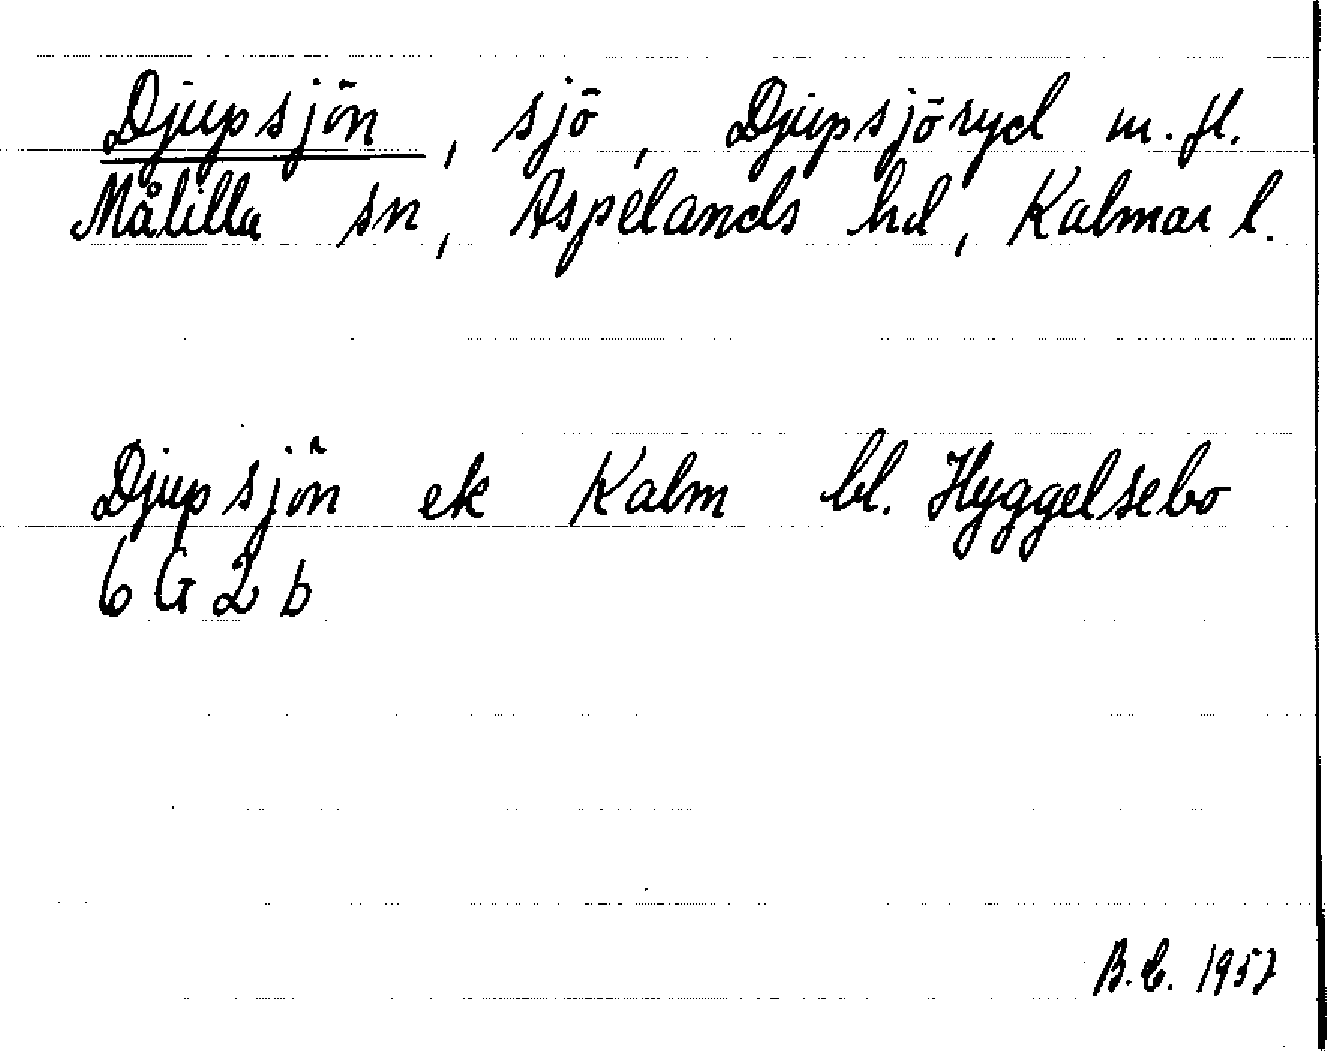 Djupsjön, sjö, Djupsjöryd m.fl.
Målilla sn, Aspelands hd, Kalmar l.
Djupsjön ek Kalm bl. Hyggelsebo
6 G 2 b
B.C. 1957